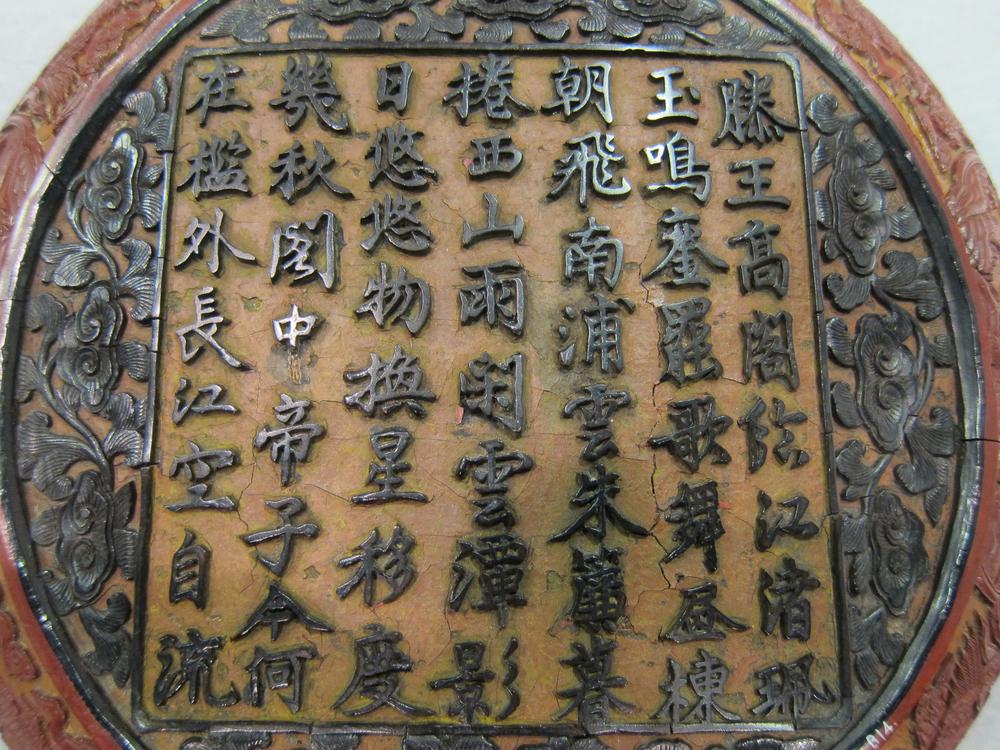 滕王髙閣臨江渚珮
玉鳴鑾罷歌舞畫棟
朝飛南浦雲朱簾暮
捲西山雨閑雲潭影
日悠悠物換星移度
幾秋閣中帝子今何
在檻外長江空自流